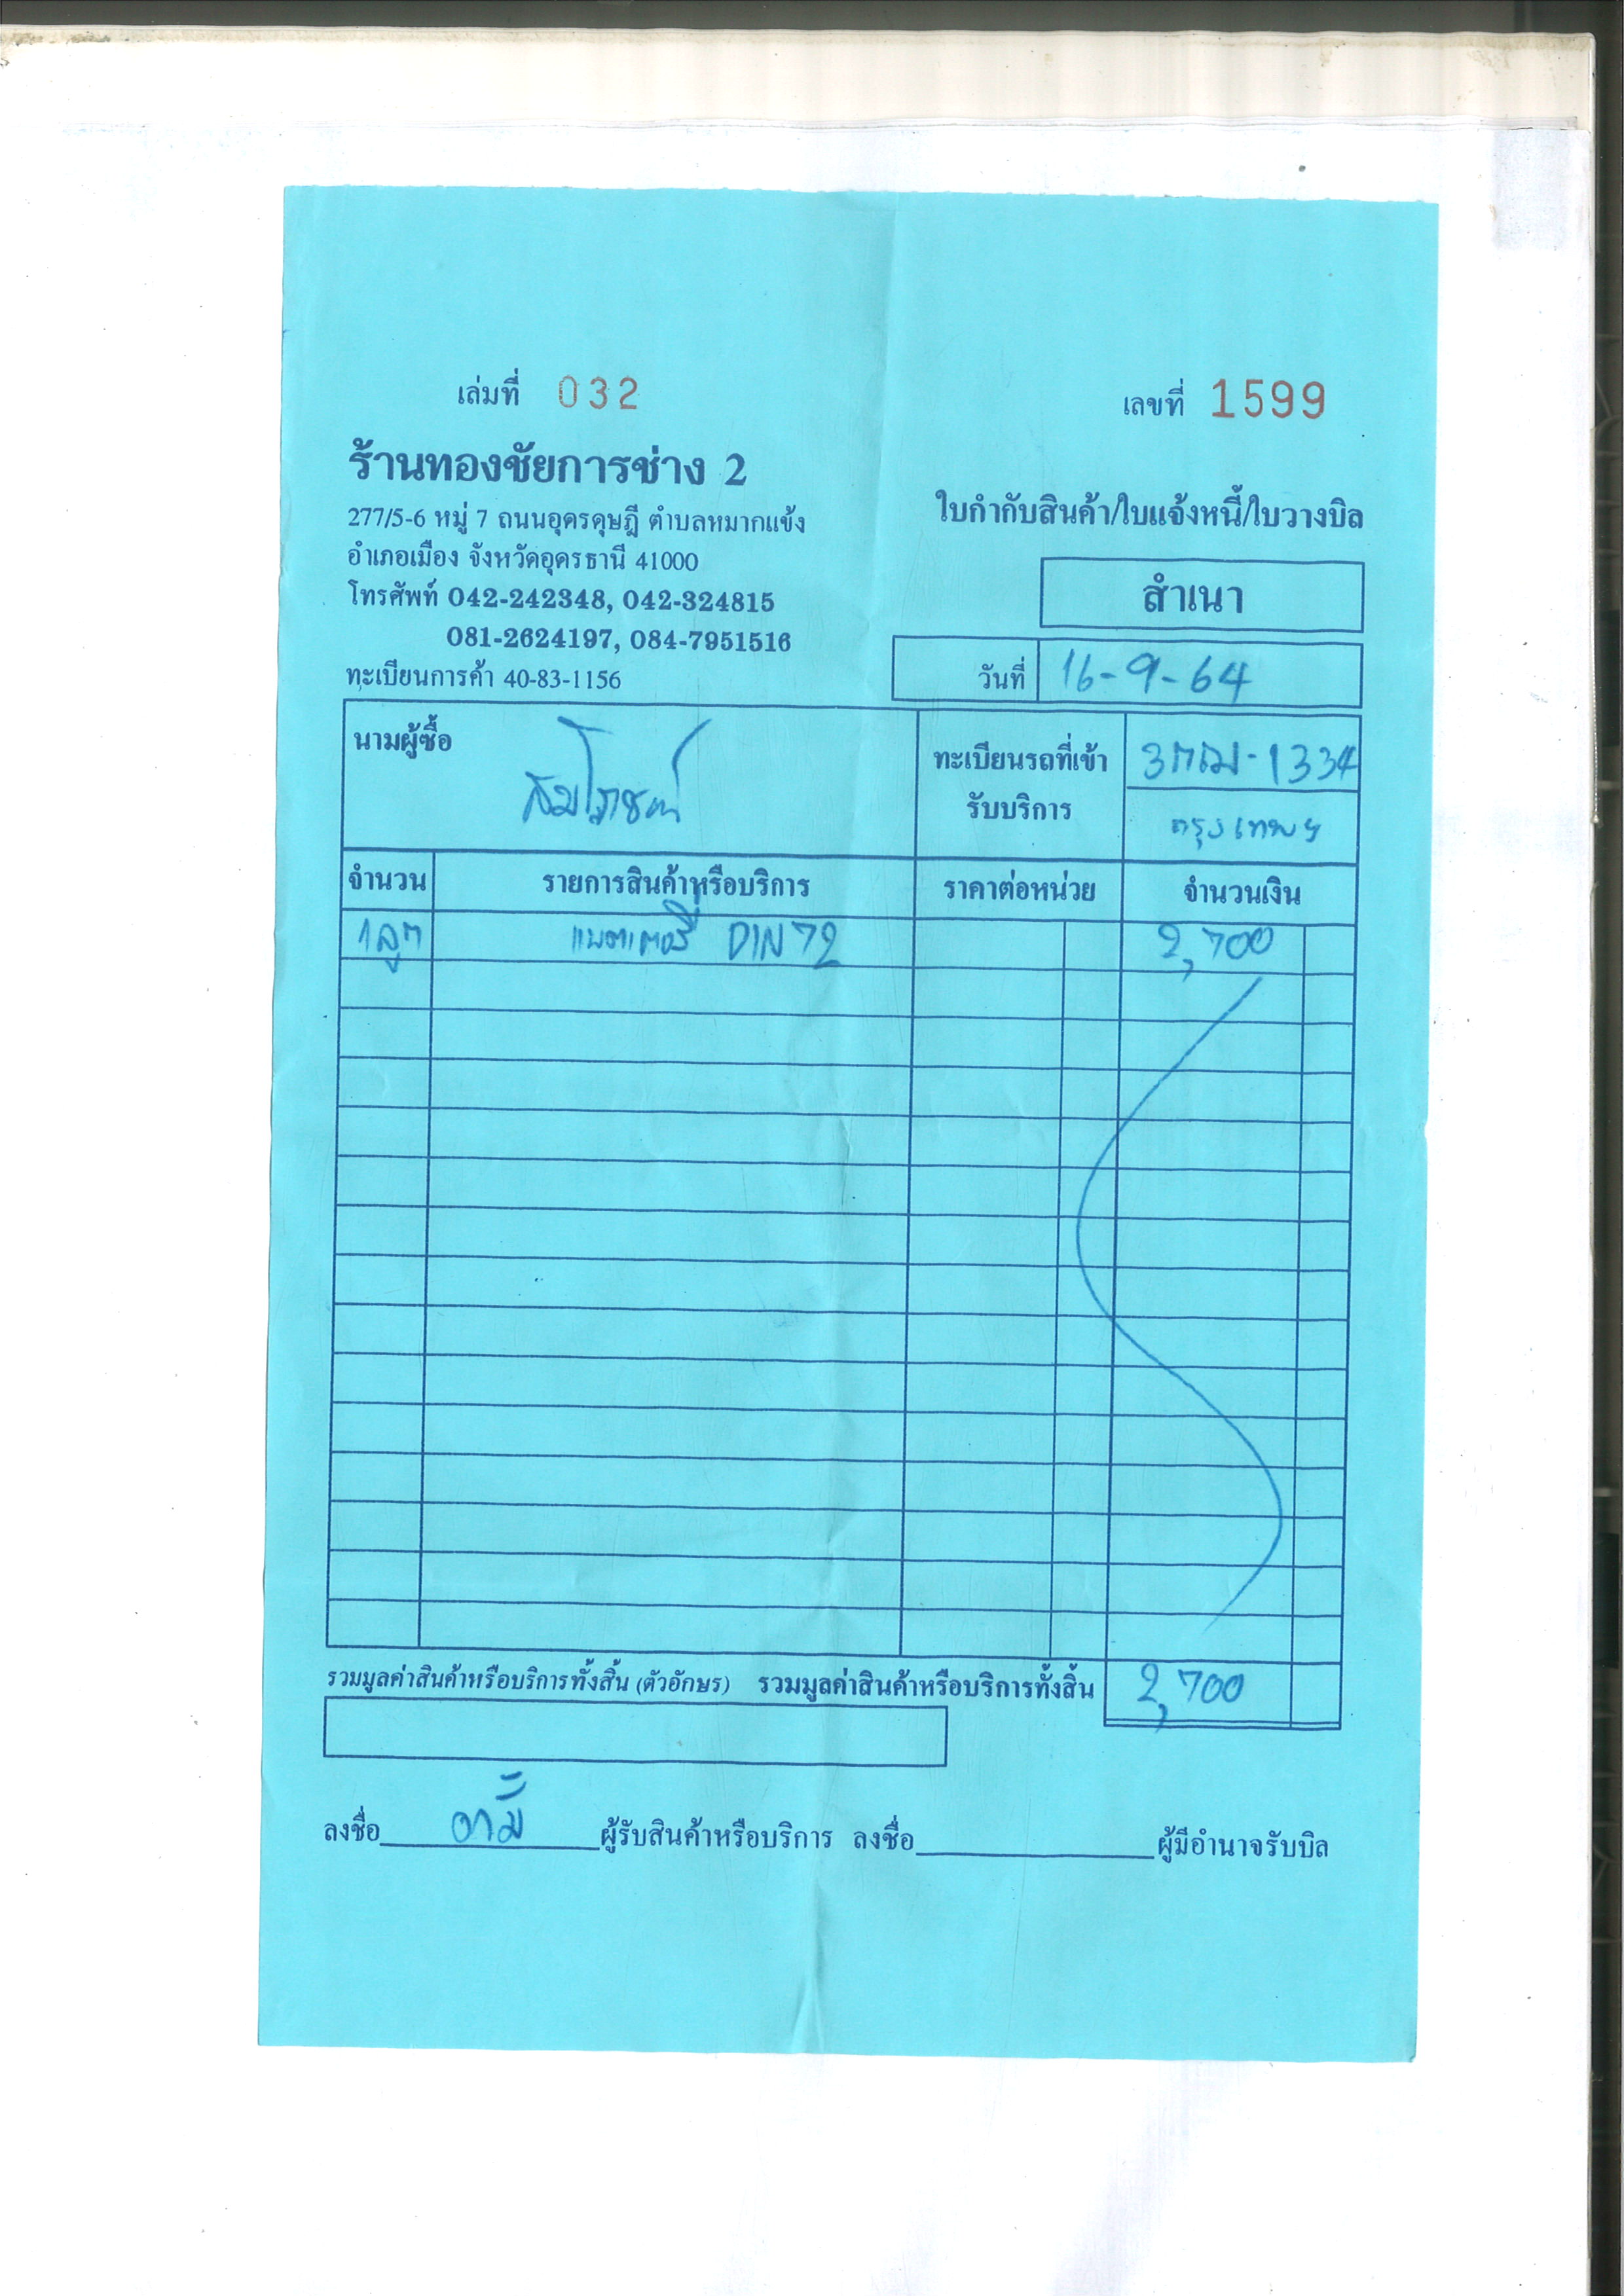 เล่มที่ 032
เลขที่ 1599
ร้านทองชัยการช่าง 2
277/5-6 หมู่ 7 ถนนอุดรดุษฎี ตำบลหมากแข้ง
อำเภอเมือง จังหวัดอุดรธานี 41000
โทรศัพท์ 042-242348, 042-324815
081-2624197, 084-7951516
ทะเบียนการค้า 40-83-1156
ใบกำกับสินค้า/ใบแจ้งหนี้/ใบวางบิล
สำเนา
วันที่ 16-9-64
นามผู้ซื้อ
ทะเบียนรถที่เข้า
รับบริการ
1334
กรุงเทพฯ
จำนวน รายการสินค้าหรือบริการ ราคาต่อหน่วย จำนวนเงิน
1ลูก แบตเตอรี่ DIN 72 2,700
รวมมูลค่าสินค้าหรือบริการทั้งสิ้น (ตัวอักษร) รวมมูลค่าสินค้าหรือบริการทั้งสิ้น 2,700
ลงชื่อ ผู้รับสินค้าหรือบริการ ลงชื่อ ผู้มีอำนาจรับบิล